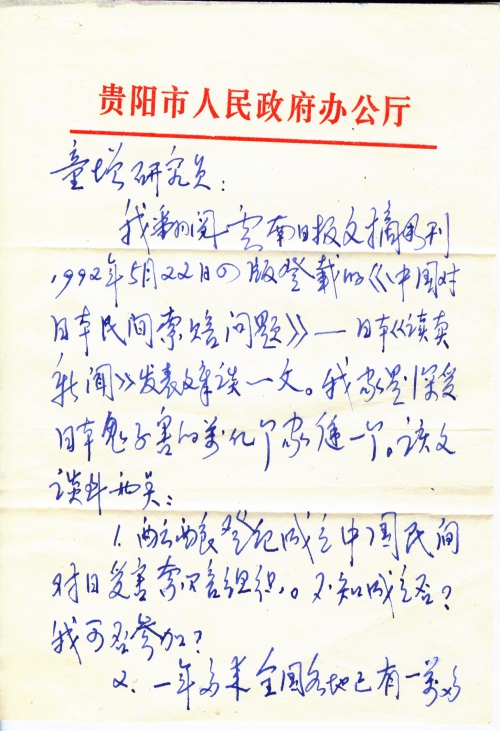 贵阳市人民政府办公厅
童增研究员：
我翻阅云南日报文摘周刊
1992年5月22日4版登载的《中国对
日本民间索赔问题》——日本《读卖
新闻》发表文章谈一文。我家是深受
日本鬼子害的万亿个家庭一个。该文
谈到两点：
1. 酝酿登记成立中国民间
对日受害索赔组织。不知成立否？
我可否参加？
2. 一年多来全国各地已有一万多